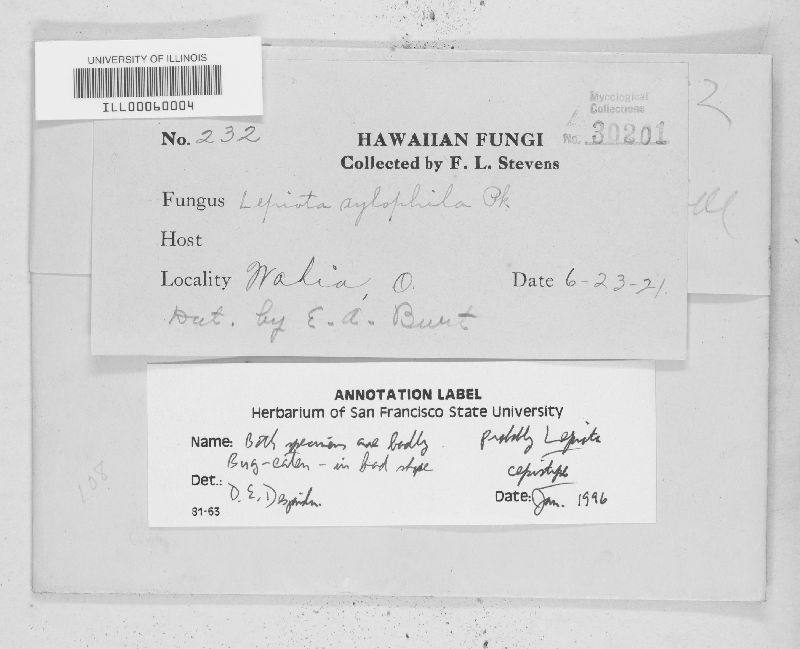 UNIVERSITY OF ILLINOIS
ILL00060004
Mycological
Collections
No. 30201
No. 232
HAWAIIAN FUNGI
Collected by F. L. Stevens
Fungus Lepiota xylophila Pk
Host
Locality Wahia, O. Date 6-23-21.
Det. by E. A. Burt
ANNOTATION LABEL
Herbarium of San Francisco State University
Name: Both specimens are badly
Bug-eaten - in bad shape
probably Lepiota
cepistipes
Det.: D. E. Desjardin
Date: Jan. 1996
81-63
108